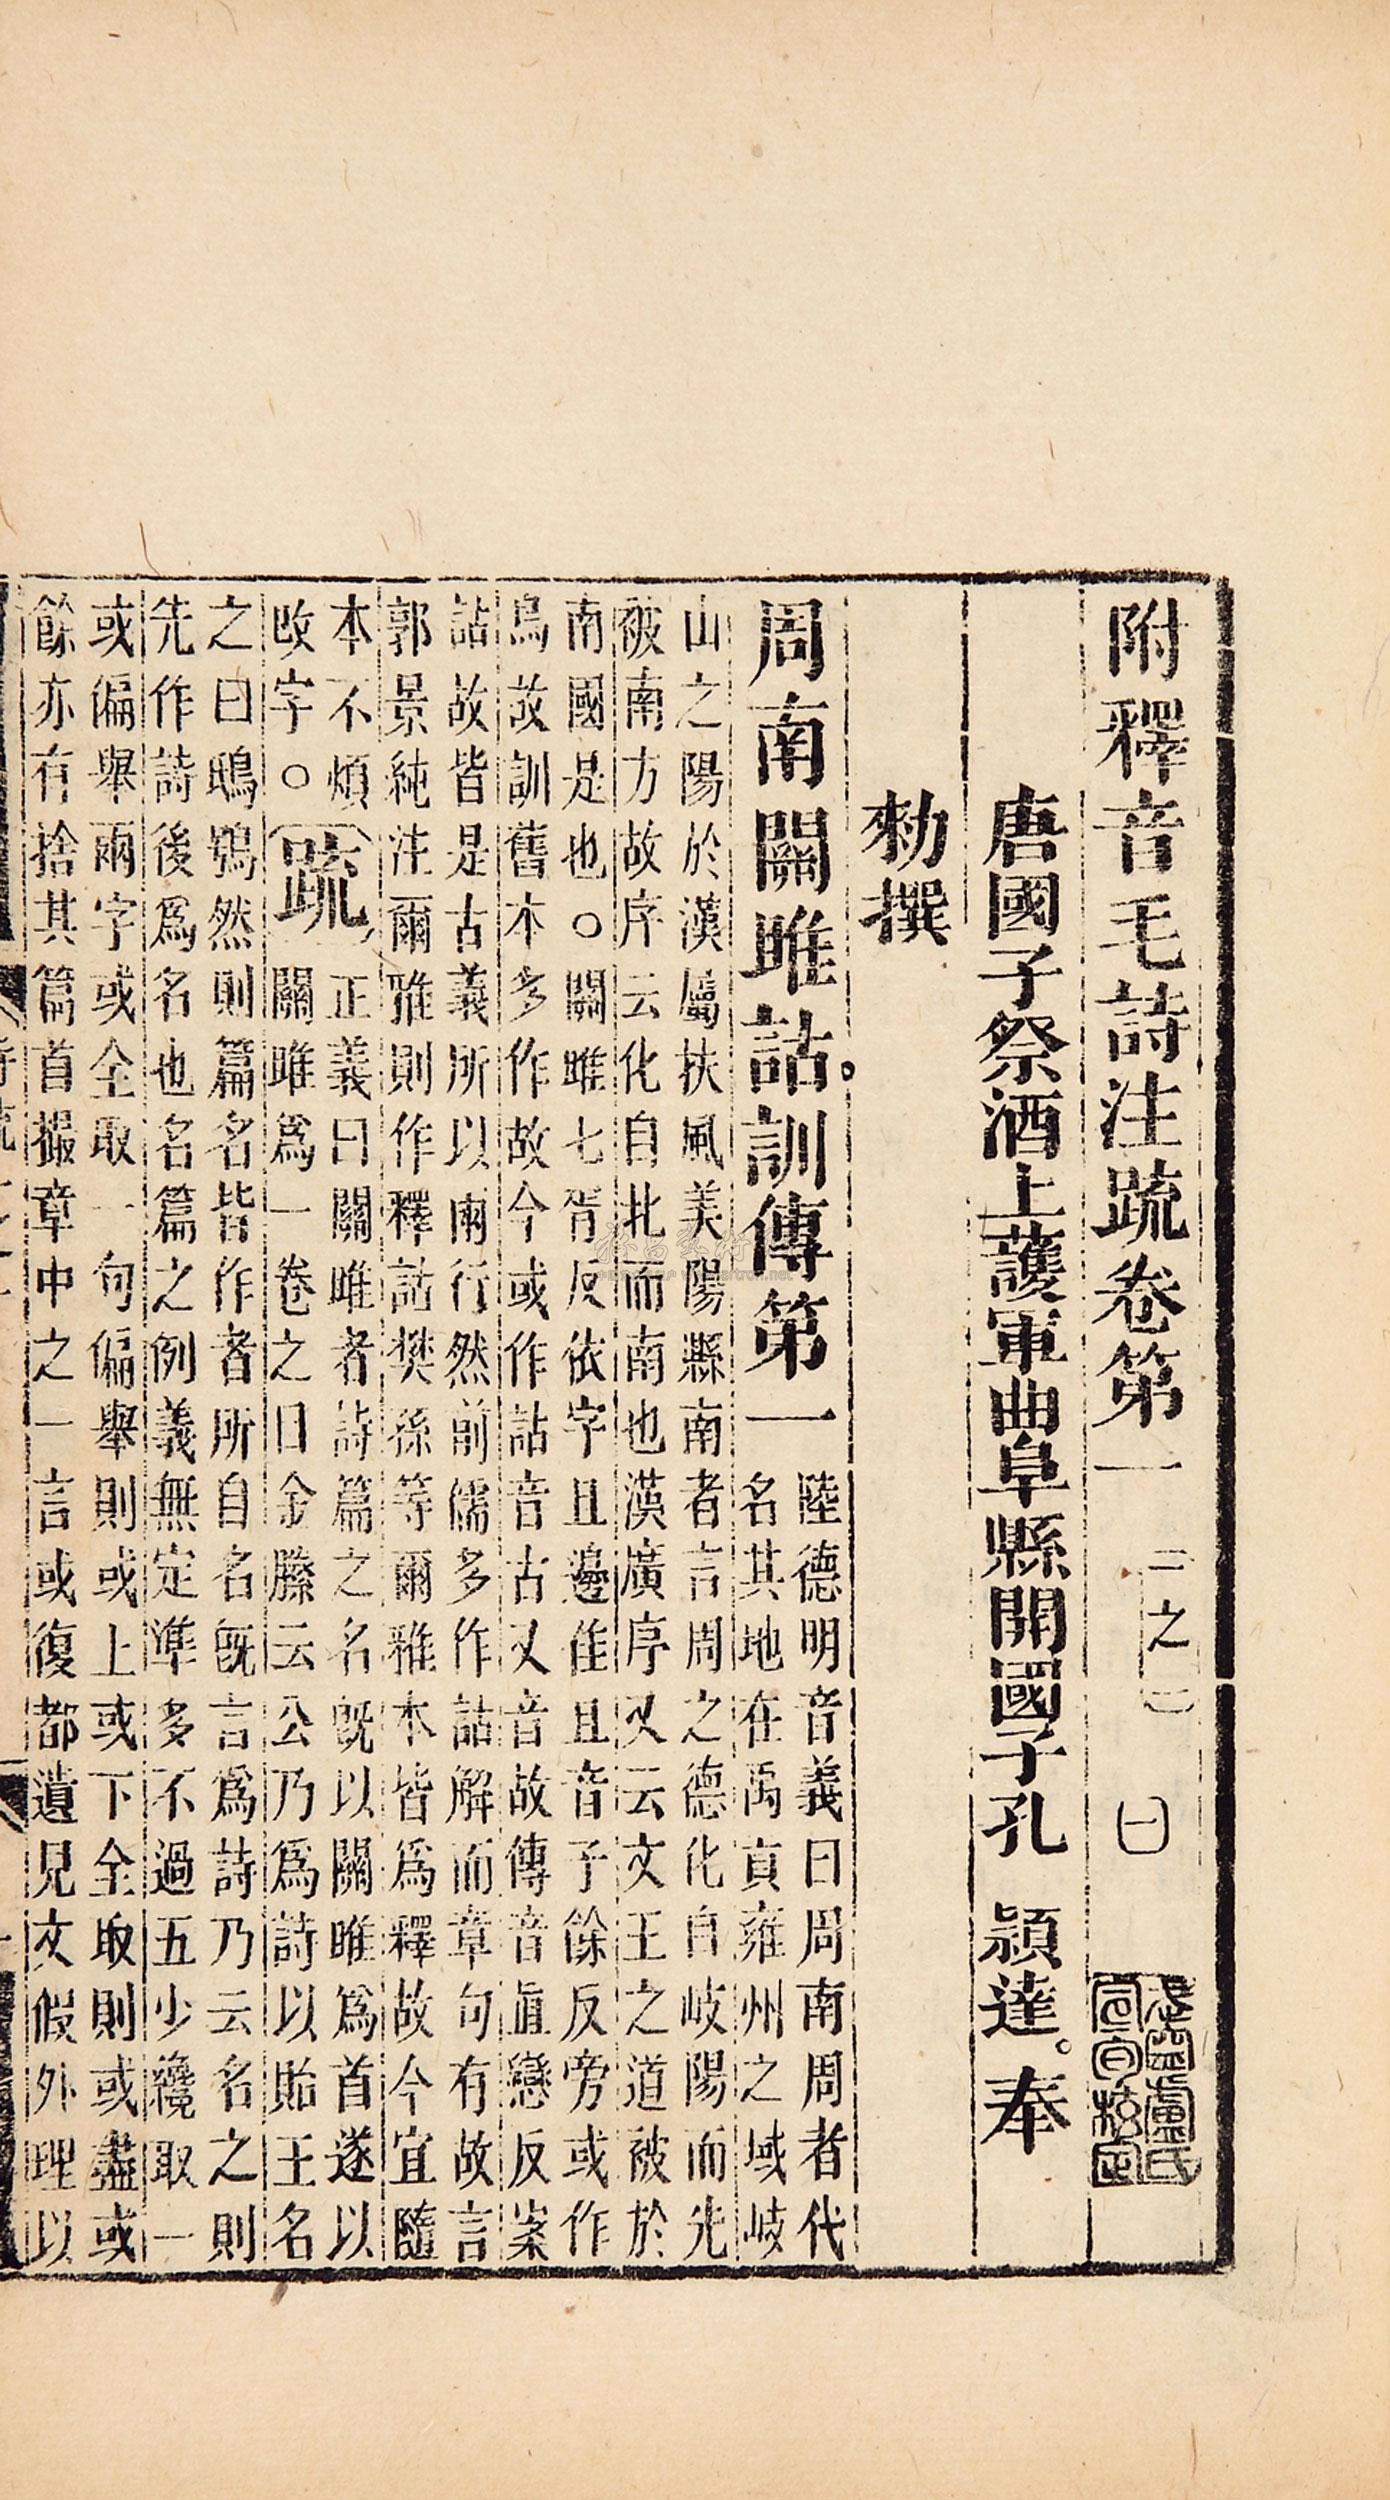 附釋音毛詩注疏卷第一 一之一 曰
唐國子祭酒上護軍曲阜縣開國子孔 頴達。奉
勑撰
周南關雎詁。訓傳第一 陸德明音義曰周南周者代
名其地在禹貢雍州之域岐
山之陽於漢屬扶風美陽縣南者言周之德化自岐陽而先
被南方故序云化自北而南也漢廣序又云文王之道被於
南國是也○關雎七胥反依字且邊隹且音子餘反旁或作
鳥故訓舊本多作故今或作詁音古又音故傳音直戀反案
詁故皆是古義所以兩行然前儒多作詁解而章句有故言
郭景純注爾雅則作釋詁樊孫等爾雅本皆爲釋故今宜隨
本不煩改字○疏 正義曰關雎者詩篇之名既以關雎爲首遂以
關雎爲一卷之目金縢云公乃爲詩以貽王名
之曰鴟鴞然則篇名皆作者所自名既言爲詩乃云名之則
先作詩後爲名也名篇之例義無定準多不過五少纔取一
或偏舉兩字或全取一句偏舉則或上或下全取則或盡或
餘亦有捨其篇首撮章中之一言或復都遺見文假外理以